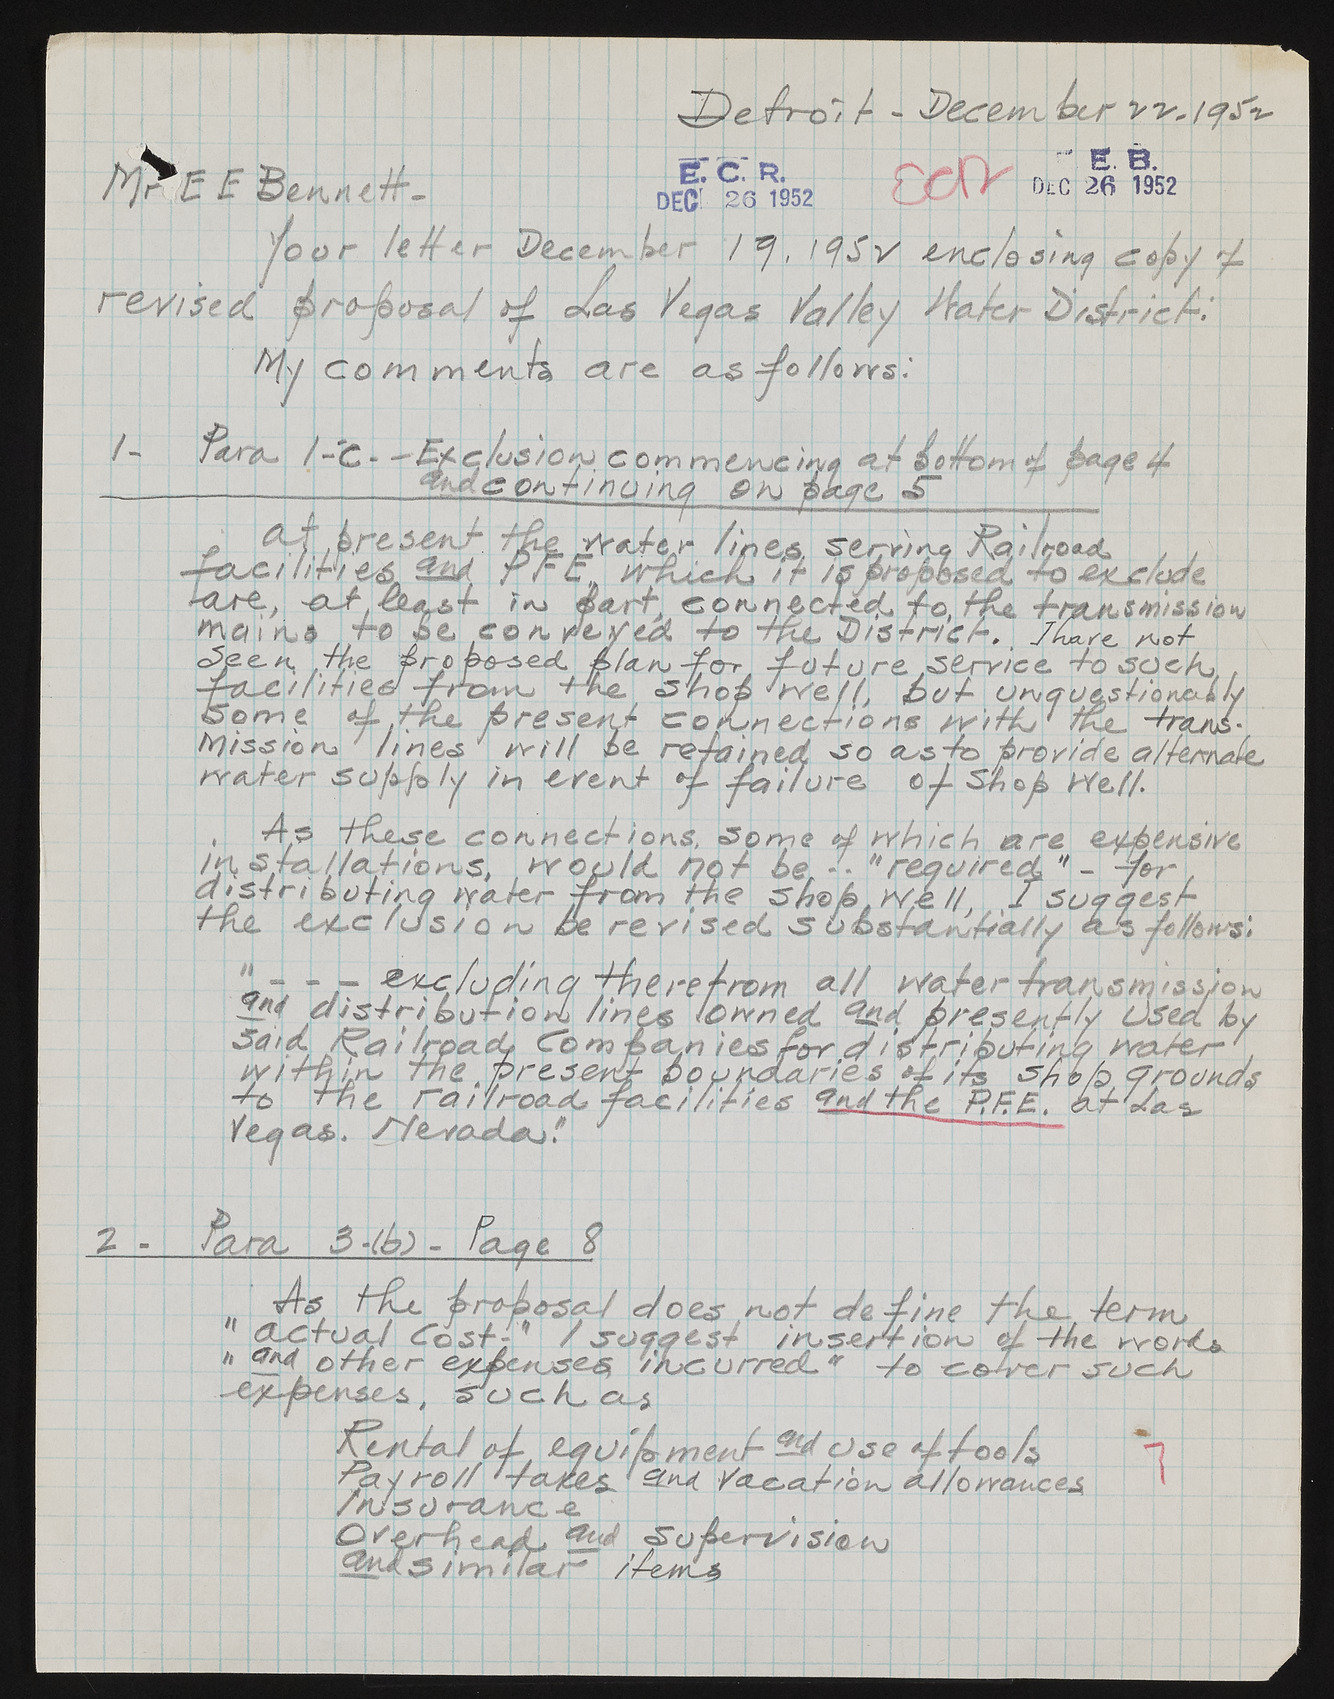 Detroit - December 22. 1952
Mr E E Bennett -
E. C. R.
DEC 26 1952
ECR
E. B.
DEC 26 1952
Your letter December 19, 1952 enclosing copy of
revised proposal of Las Vegas Valley Water District:
My comments are as follows:
1- Para 1-C. - Exclusion commencing at bottom of page 4
and continuing on page 5
At present the water lines serving Railroad
facilities and PFE, which it is proposed to exclude
are, at least in part, connected to the transmission
mains to be conveyed to the District. I have not
seen the proposed plan for future service to such
facilities from the shop well, but unquestionably
some of the present connections with the trans-
mission lines will be retained so as to provide alternate
water supply in event of failure of Shop Well.
As these connections, some of which are expensive
installations, would not be -- "required" - for
distributing water from the shop well, I suggest
the exclusion be revised substantially as follows:
"- - - excluding therefrom all water transmission
and distribution lines owned and presently used by
said Railroad Companies for distributing water
within the present boundaries of its shop grounds
to the railroad facilities and the P.F.E. at Las
Vegas. Nevada."
2 - Para 3-(b) - Page 8
As the proposal does not define the term
"actual cost-" I suggest insertion of the words
"and other expenses incurred" to cover such
expenses, such as
Rental of equipment and use of tools
Payroll taxes and vacation allowances
Insurance
Overhead and supervision
and similar items